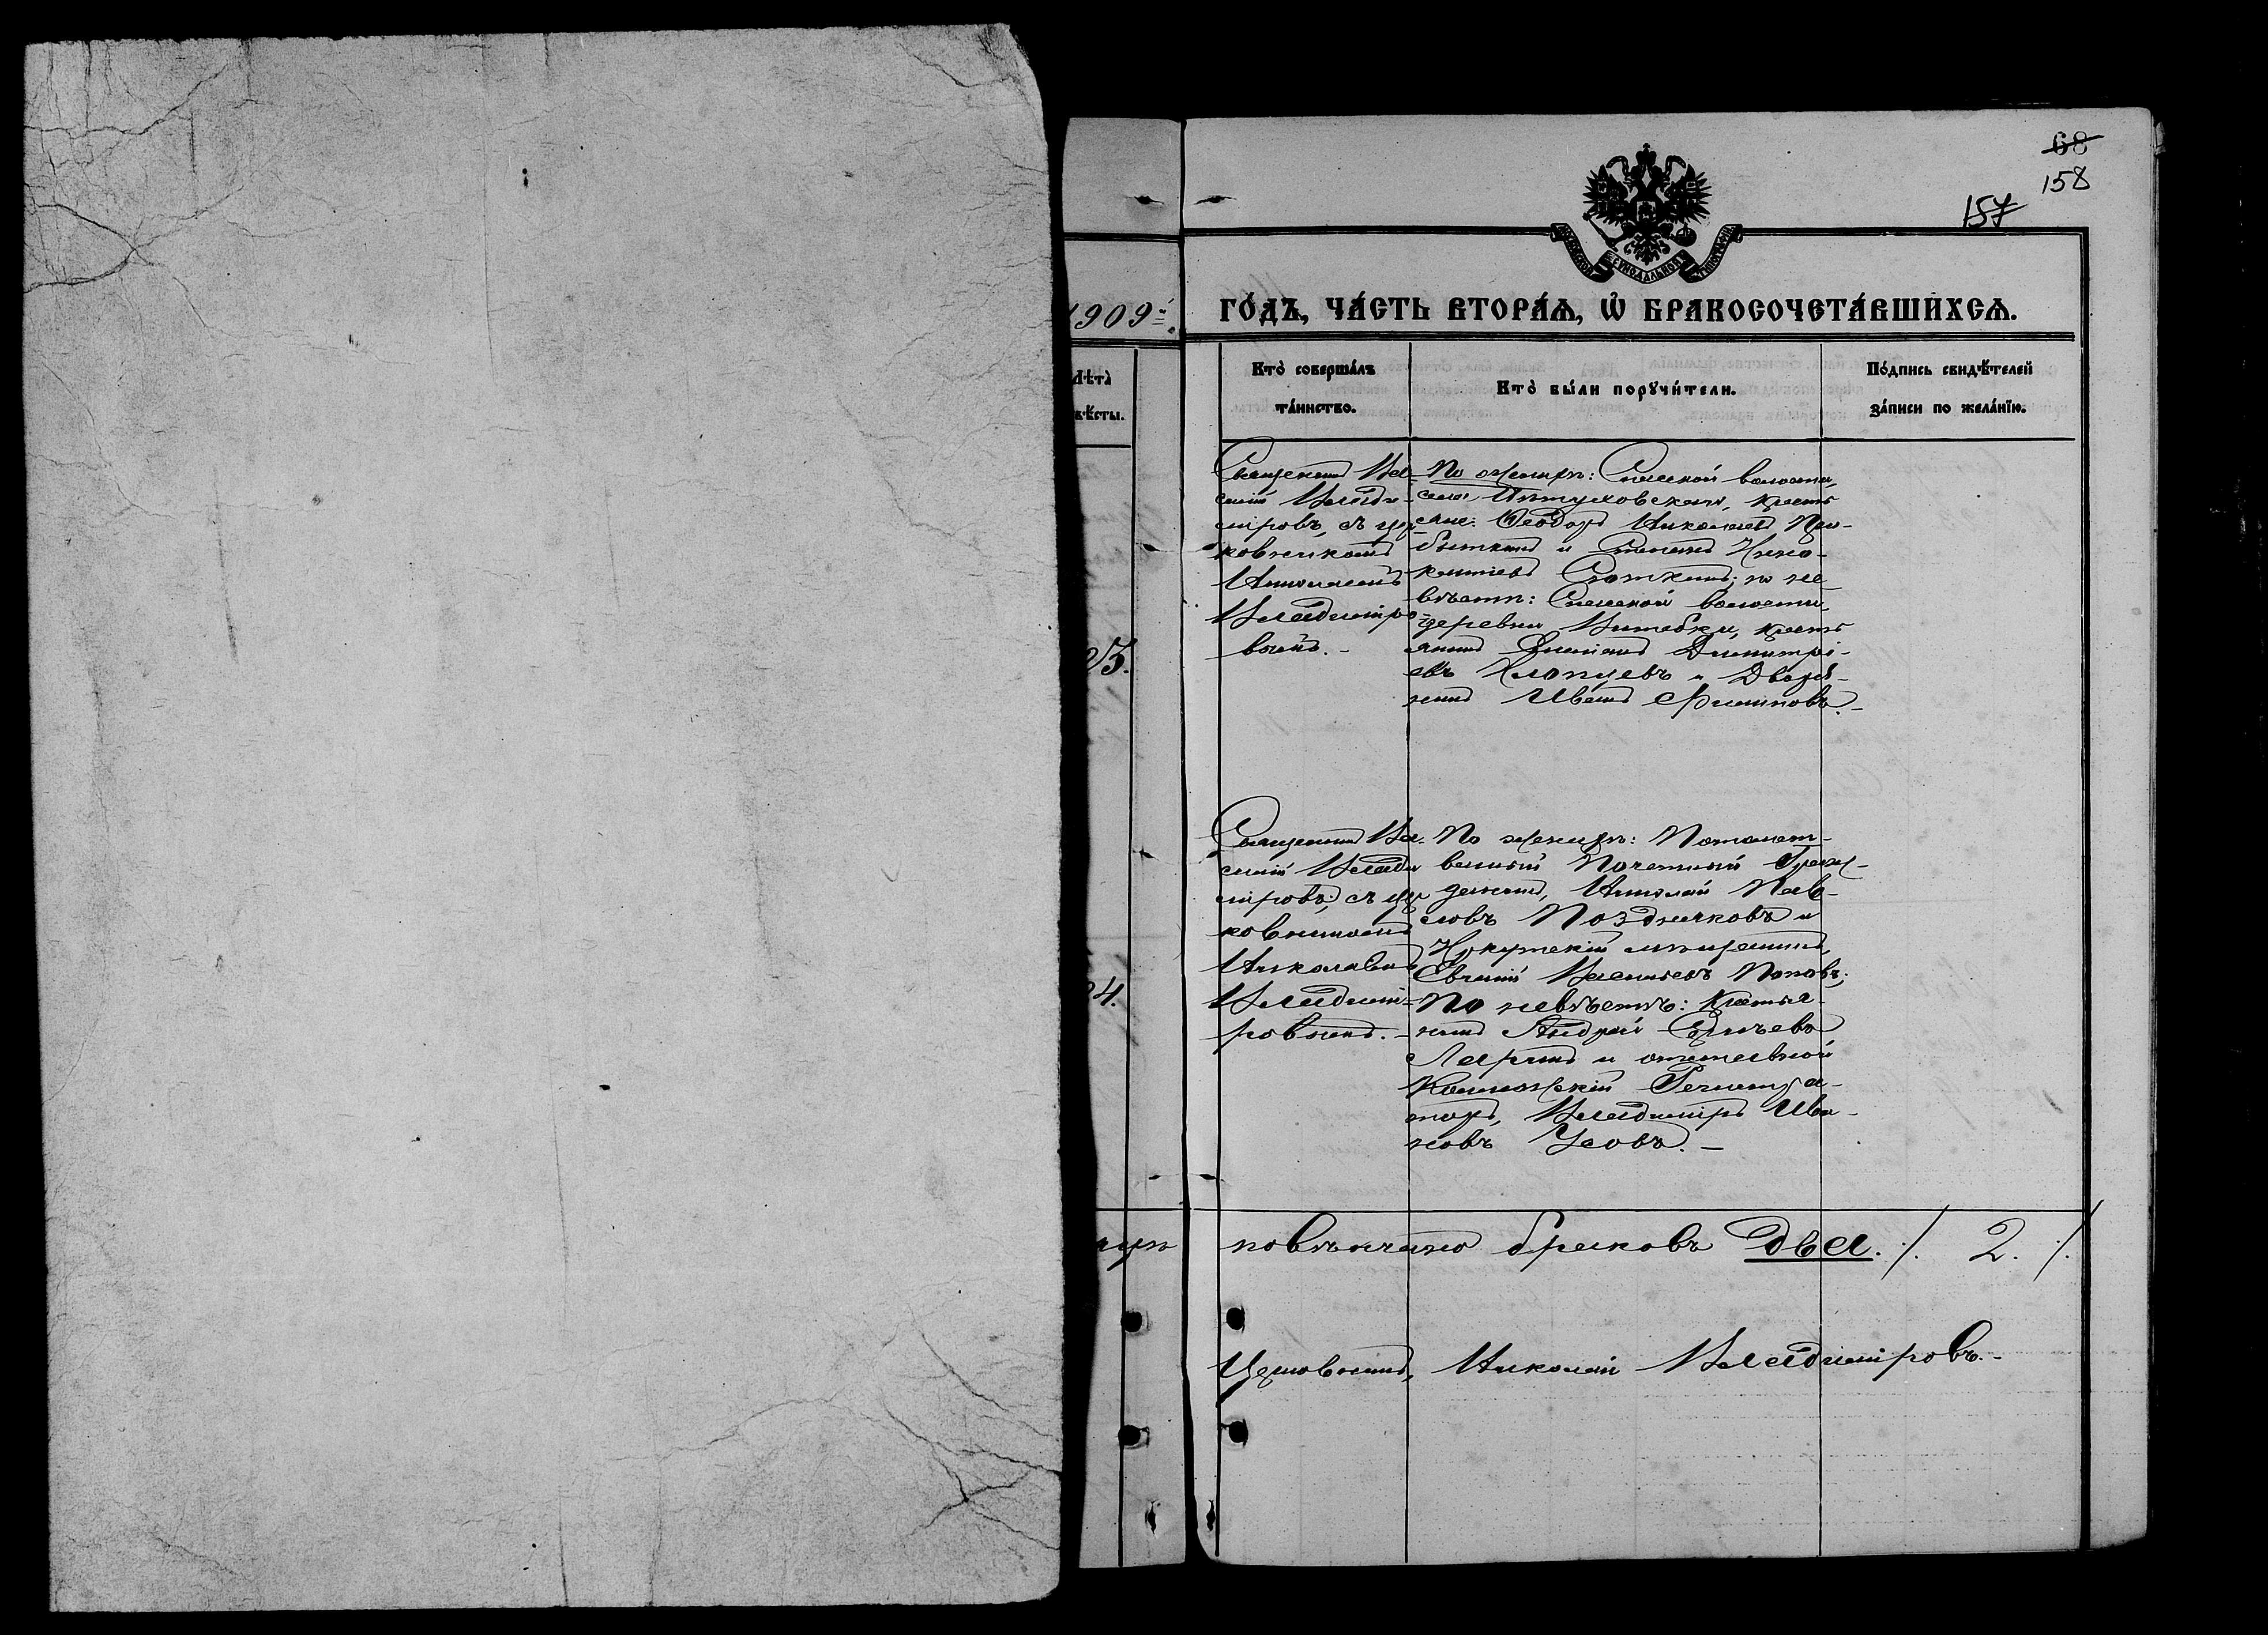 68
158
157
МОСКОВСКОЙ СΥНОДАЛЬНОЙ ТИПОГРАФІИ
1909
ГО́ДЪ, ЧА́СТЬ ВТОРА́Ѧ, Ѽ БРАКОСОЧЕТА́ВШИХСѦ.
Лѣта̀
вѣ́сты.
Кто̀ соверша́лъ
та́инство.
Кто̀ бы́ли порꙋчи́тели.
По́дпись свидѣ́телей
за́писи по жела́нїю.
23.
Священникъ Ва-
силій Влади-
міровъ, съ цер-
ковникомъ
Николаемъ
Владиміро-
вымъ. -
По жениху: Спасской волости,
села Пѣтуховскаго, кресть
яне: Ѳеодоръ Николаевъ При-
быткинъ и Степанъ Инно-
кентіевъ Сюткинъ; по не-
вѣстѣ: Спасской волости,
деревни Витебки, кресть
янинъ Димитрі-
евъ Хлопцевъ и Дворя-
нинъ Иванъ Филиповъ. -
24.
Священникъ Ва-
силій Влади
міровъ, съ цер
ковникомъ
Николаемъ
Владимі-
ровымъ. -
По жениху: Потомст-
венный Почетный Граж-
данинъ, Николай Пав-
ловъ Поздняковъ и
Иркутскій мѣщанинъ,
Евгеній Васильевъ Поповъ;
По невѣстѣ: Крестья-
нинъ Андрей
Ларинъ и отставной
Коллежскій Регистра-
торъ, Владиміръ Ива-
новъ Усовъ. -
повѣнчано браковъ два. ./. 2. ./.
Церковникъ, Николай Владиміровъ. -